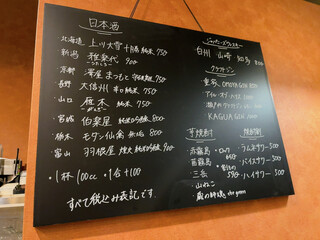 日本酒
北海道 上川大雪 十勝 純米 750
新潟 雅楽代 900
京都 澤屋まつもと 守破離 750
長野 大信州 辛口純米 750
山口 雁木 純米 750
宮城 伯楽星 純米吟醸 800
栃木 モダン仙禽 無垢 800
富山 羽根屋 煌火 純米吟醸 900
・1杯 100cc ・1合 +100
すべて税込み表記です。
ジャパニーズウイスキー
白州 山崎 知多 800
クラフトジン
KAGUA GIN
芋焼酎
・赤霧島 ・ロック
・茜霧島
・三岳
・山ねこ
・蔵の師魂 the green
焼酎割
・ラムネサワー 500
・バイスサワー 500
・ハイサワー 500